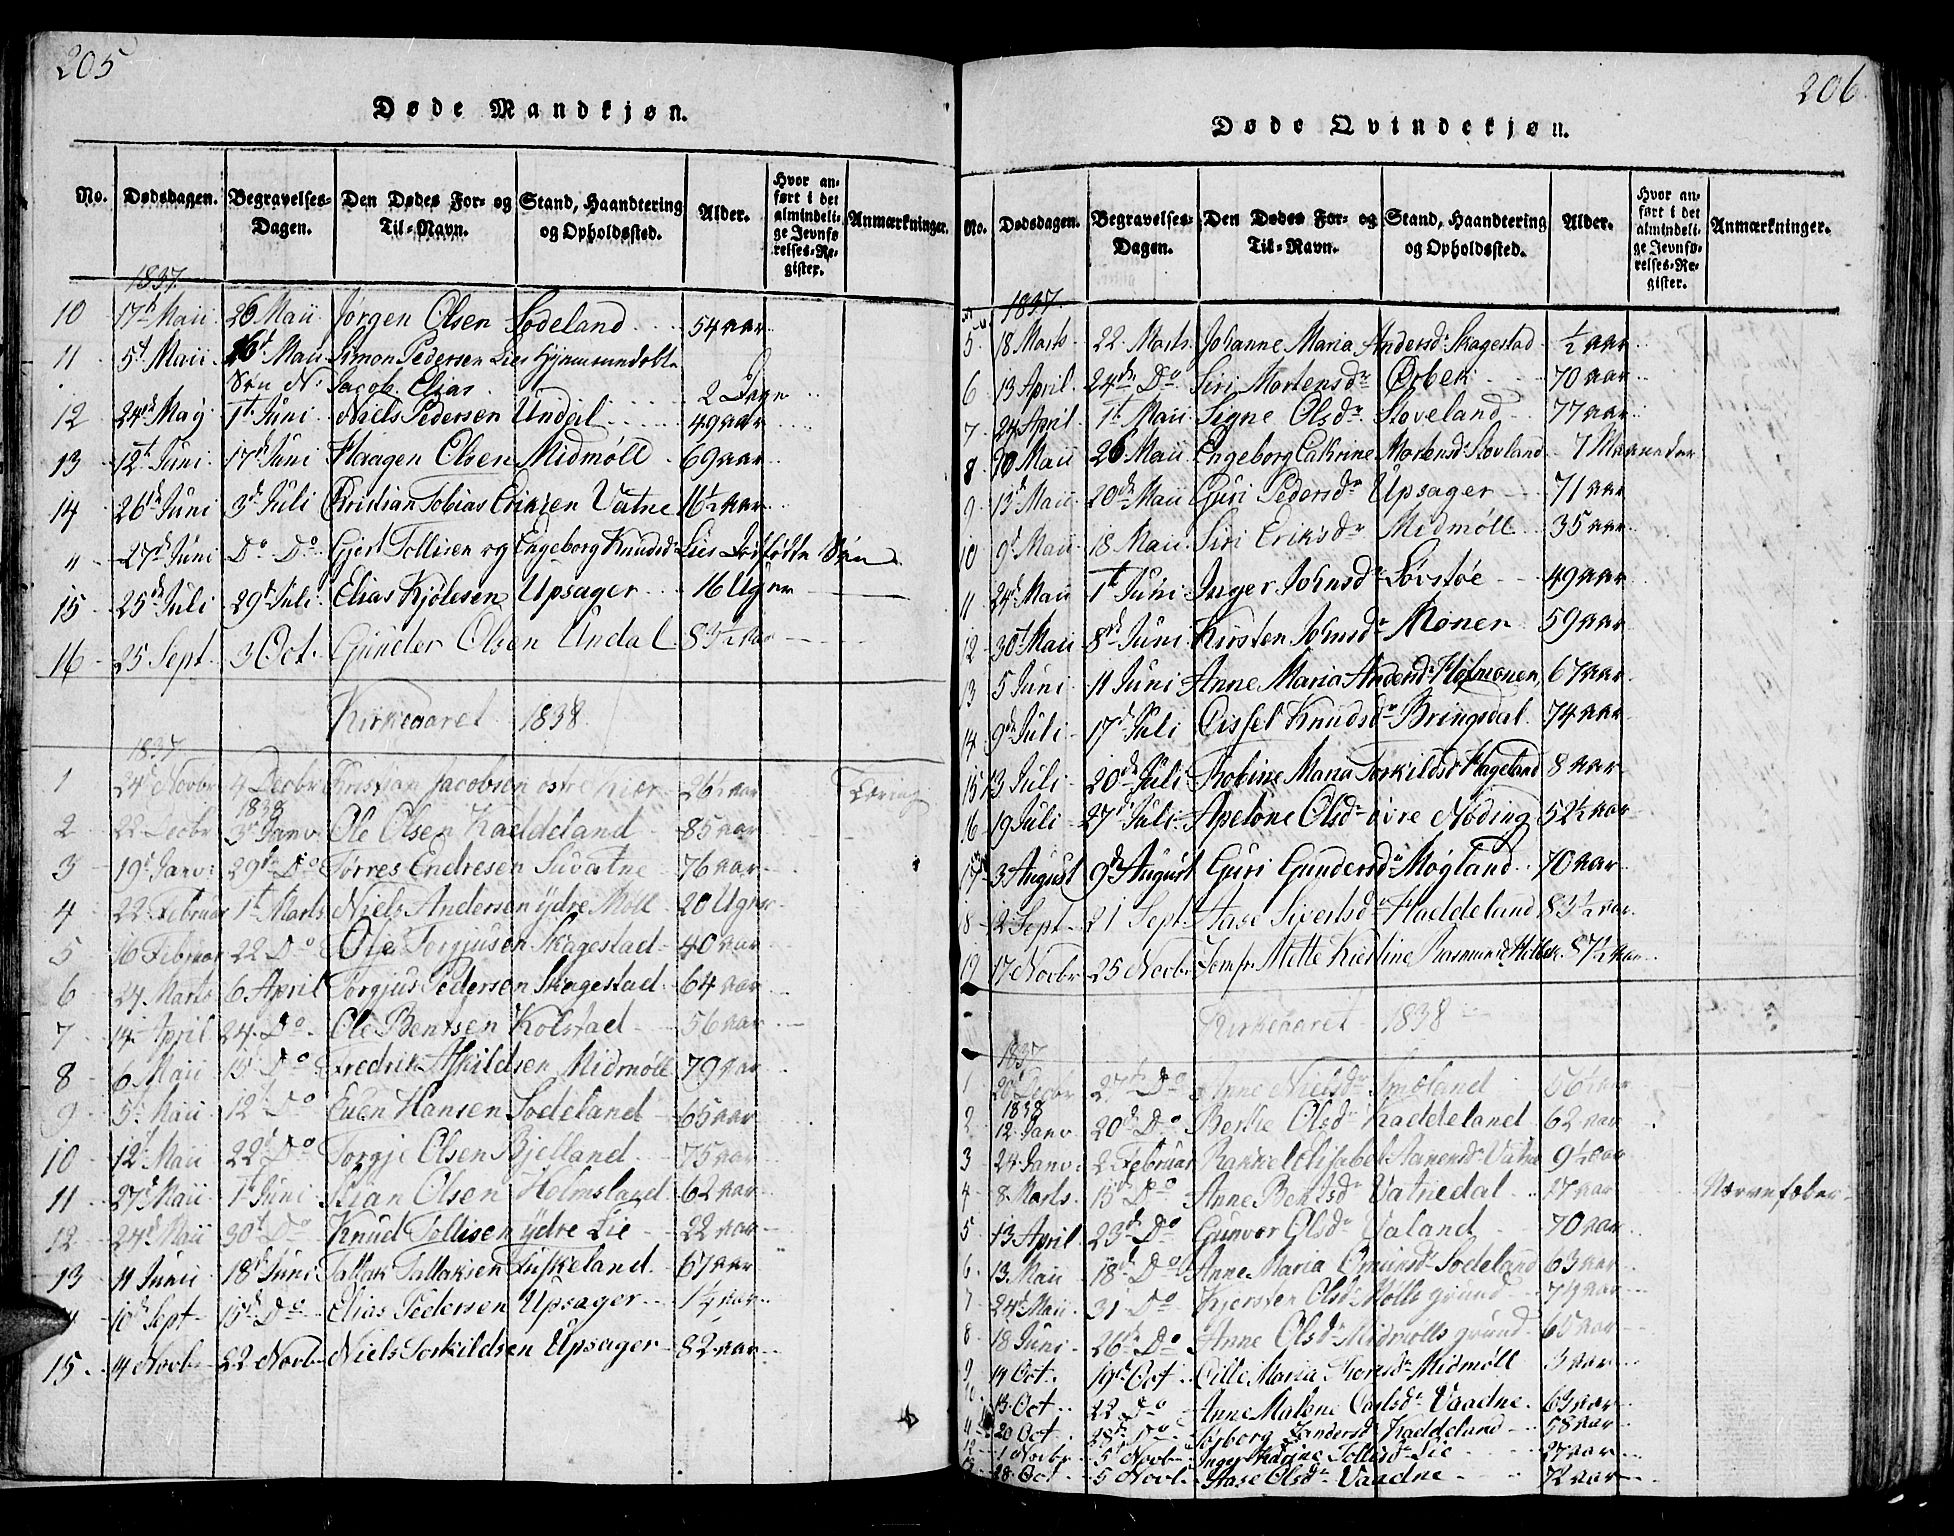 205
Døde Mandkjøn.
No. Dødsdagen. Begravelses-Dagen. Den Dødes For- og Til-Navn. Stand, Haandtering og Opholdssted. Alder. Hvor anført i det almindelige Jevnførelses-Register. Anmærkninger.
1837
10 17t Maii 26 Maii Jørgen Olsen Sødeland 54 aar
11 5t Maii 16t Maii Simon Pedersen Lies
Søn N: Jacob Elias 2 Dage
12 24de May 1t Juni Niels Pedersen Undal 49 aar
13 12t Juni 17de Juni Haagen Olsen Midmøll 69 aar
14 26de Juni 3de Juli Christian Tobias Eriksen Vatne 16½ aar
" 27de Juni Do Do Gjert Tollisen og Engeborg Knudsdr Lies Søn
15 25de Juli 29de Juli Elias Kjølesen Upsager 16 Uger
16 25 Sept. 3 Oct. Gunder Olsen Undal 83½ aar
Kirkeaaret 1838
1837
1 24de Novbr 4 Decbr Kristian Jacobsen 26½ aar Tæring
1838
2 22 Decbr 3de Janv Ole Olsen Haddeland 85 aar
3 19de Janv: 29de Do Tørres Endresen Suvatne 76 aar
4 22 Februar 1t Marts Niels Andersen ydre Møll 20 Uger
5 16 Februar 22 Do Ole Torgjusen Skagestad 40 aar
6 24 Marts 6 April Torgjus Pedersen Skagestad 64 aar
7 14 April 24 Do Ole Bentsen Kolstad 56 aar
8 6 Maii 15 Do Fredrik Askildsen Midmøll 79 aar
9 5t Maii 12t Do Even Hansen Sødeland 65 aar
10 12t Maii 22de Do Torgje Olsen Bjelland 75 aar
11 27de Maii 1t Juni Stian Olsen Holmsland 62 aar
12 24de Maii 30t Do Knud Tollisen ydre Lie 22 aar
13 11 Junii 18de Juni Tallak Tallaksen Fuskeland 67 aar
10de Sept 15de Do Elias Pedersen Upsager 1¼ aar
15 14 Novbr 22 Novbr Niels Torkildsen Upsager 82 aar
206
Døde Qvindekjøn.
No. Dødsdagen. Begravelses-Dagen. Den Dødes For- og Til-Navn. Stand, Haandtering og Opholdssted. Alder. Hvor anført i det almindelige Jevnførelses-Register. Anmærkninger.
1837
5 18 Marts 22 Marts Johanne Maria Andersdr Skagestad ½ aar
6 13 April 24de Do Siri Mortensdr Orbek 70 aar
7 24 April 1t Maii Signe Olsdr Støveland 77 aar
8 10 Maii 26 Maii Engeborg Cathrine Mortensdr Støvland 7 Maaneder
9 13de Maii 20de Maii Guri Pedersdr Upsager 71 aar
10 9t Maii 18 Maii Siri Eriksdr Midmøll 35 aar
11 24de Maii 1t Juni Inger Johnsdr Søvstøe 49 aar
12 30t Maii 8de Juni Kirsten Johnsdr Monen 59 aar
13 5 Juni 11 Juni Anne Maria Andersdr Holmonen 67 aar
14 9de Juli 17de Juli Cissel Knudsdr Bringsdal 74 aar
15 13 Juli 20de Juli Tobine Maria Torkildsdr Hageland 8 aar
16 19 Juli 27de Juli Apelone Olsdr øvre Nøding 52½ aar
17 3 August 9de August Guri Gundersdr Møgland 70 aar
18 12 Sept 21 Sept Aase Sivertsdr Haddeland 83½ aar
19 17 Novbr 25 Novbr Jomfr Mette Kirstine 87½ aar
Kirkeaaret 1838
1837
1 20de Decbr 27de Do Anne Nielsdr Smaeland 56½ aar
1838
2 12 Janv 20de Do Berthe Olsdr Haddeland 62 aar
3 24 Janv: 2 Februar Rakkel Elisabet Aanensdr Vatne 9½ aar
4 8 Marts 15de Do Anne Bentsdr Vatnedal 27 aar Nervefeber
5 13 April 23de Do Gunvor Olsdr Valand 70 aar
6 13 Maii 18de Do Anne Maria Omundsdr Sødeland 63 aar
7 24de Maii 31 Do Kjersten Olsdr Mølls grund
8 18 Juni 26de Do Anne Olsdr Midmølls grund 65 aar
9 14 Oct. 19de Oct Cille Maria Midmøll 3 aar
10 13 Oct 22 Do Anne Malene Carlsdr Vaadne 63 aar
11 20 Oct 28de Do Haddeland 58 aar
12 1 Novbr 5t Novbr Inger Karine Tollisdr Lie 27 aar
28 Oct 5 Novb. Aase Olsdr Vaadne 72 aar